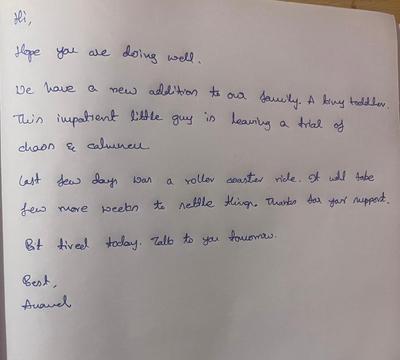 Hi,
Hope you are doing well.
We have a new addition to our family. A tiny toddler.
This impatient little guy is leaving a trial of
chaos &
Last few days was a roller coaster ride. It will take
few more weeks to settle things. Thanks for your support.
Bit tired today. Talk to you tomorrow.
Best,